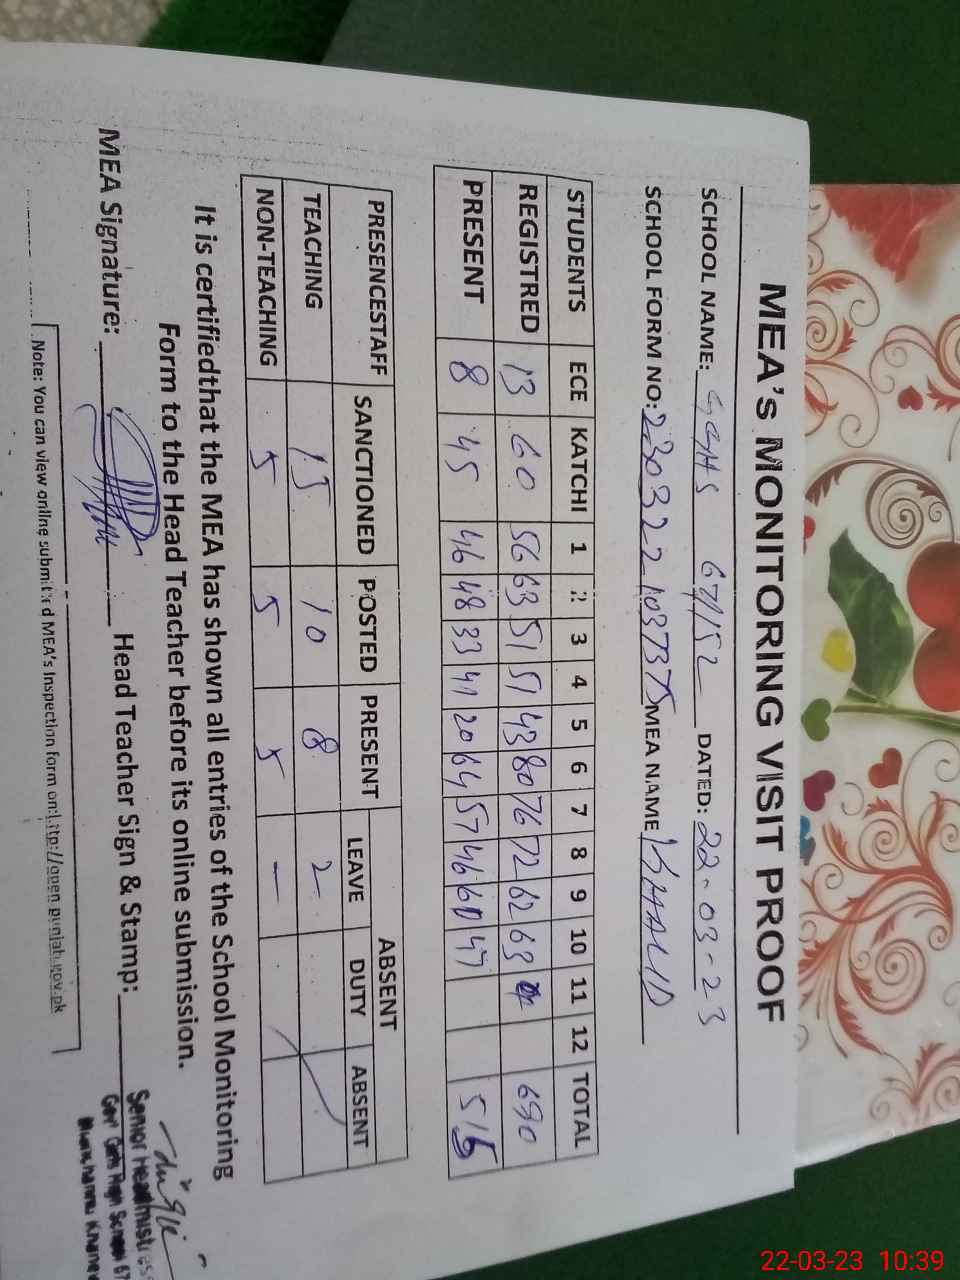 MEA's MONITORING VISIT PROOF
SCHOOL NAME: GGHS 67/152 DATED: 22-03-23
SCHOOL FORM NO: 230322 1037375 MEA NAME KHALID
STUDENTS ECE KATCHI 1 2 3 4 5 6 7 8 9 10 11 12 TOTAL
REGISTRED 13 60 56 63 51 51 43 80 76 72 62 63 690
PRESENT 8 45 46 48 33 41 20 64 57 46 61 47 516
PRESENCESTAFF SANCTIONED POSTED PRESENT ABSENT
LEAVE DUTY ABSENT
TEACHING 15 10 8 2
NON-TEACHING 5 5 5 —
It is certifiedthat the MEA has shown all entries of the School Monitoring
Form to the Head Teacher before its online submission.
MEA Signature: Head Teacher Sign & Stamp:
Senior Headmistress
Govt Girls High School 67
Note: You can view online submitted MEA's Inspection form on: http://open.punjab.gov.pk
22-03-23 10:39